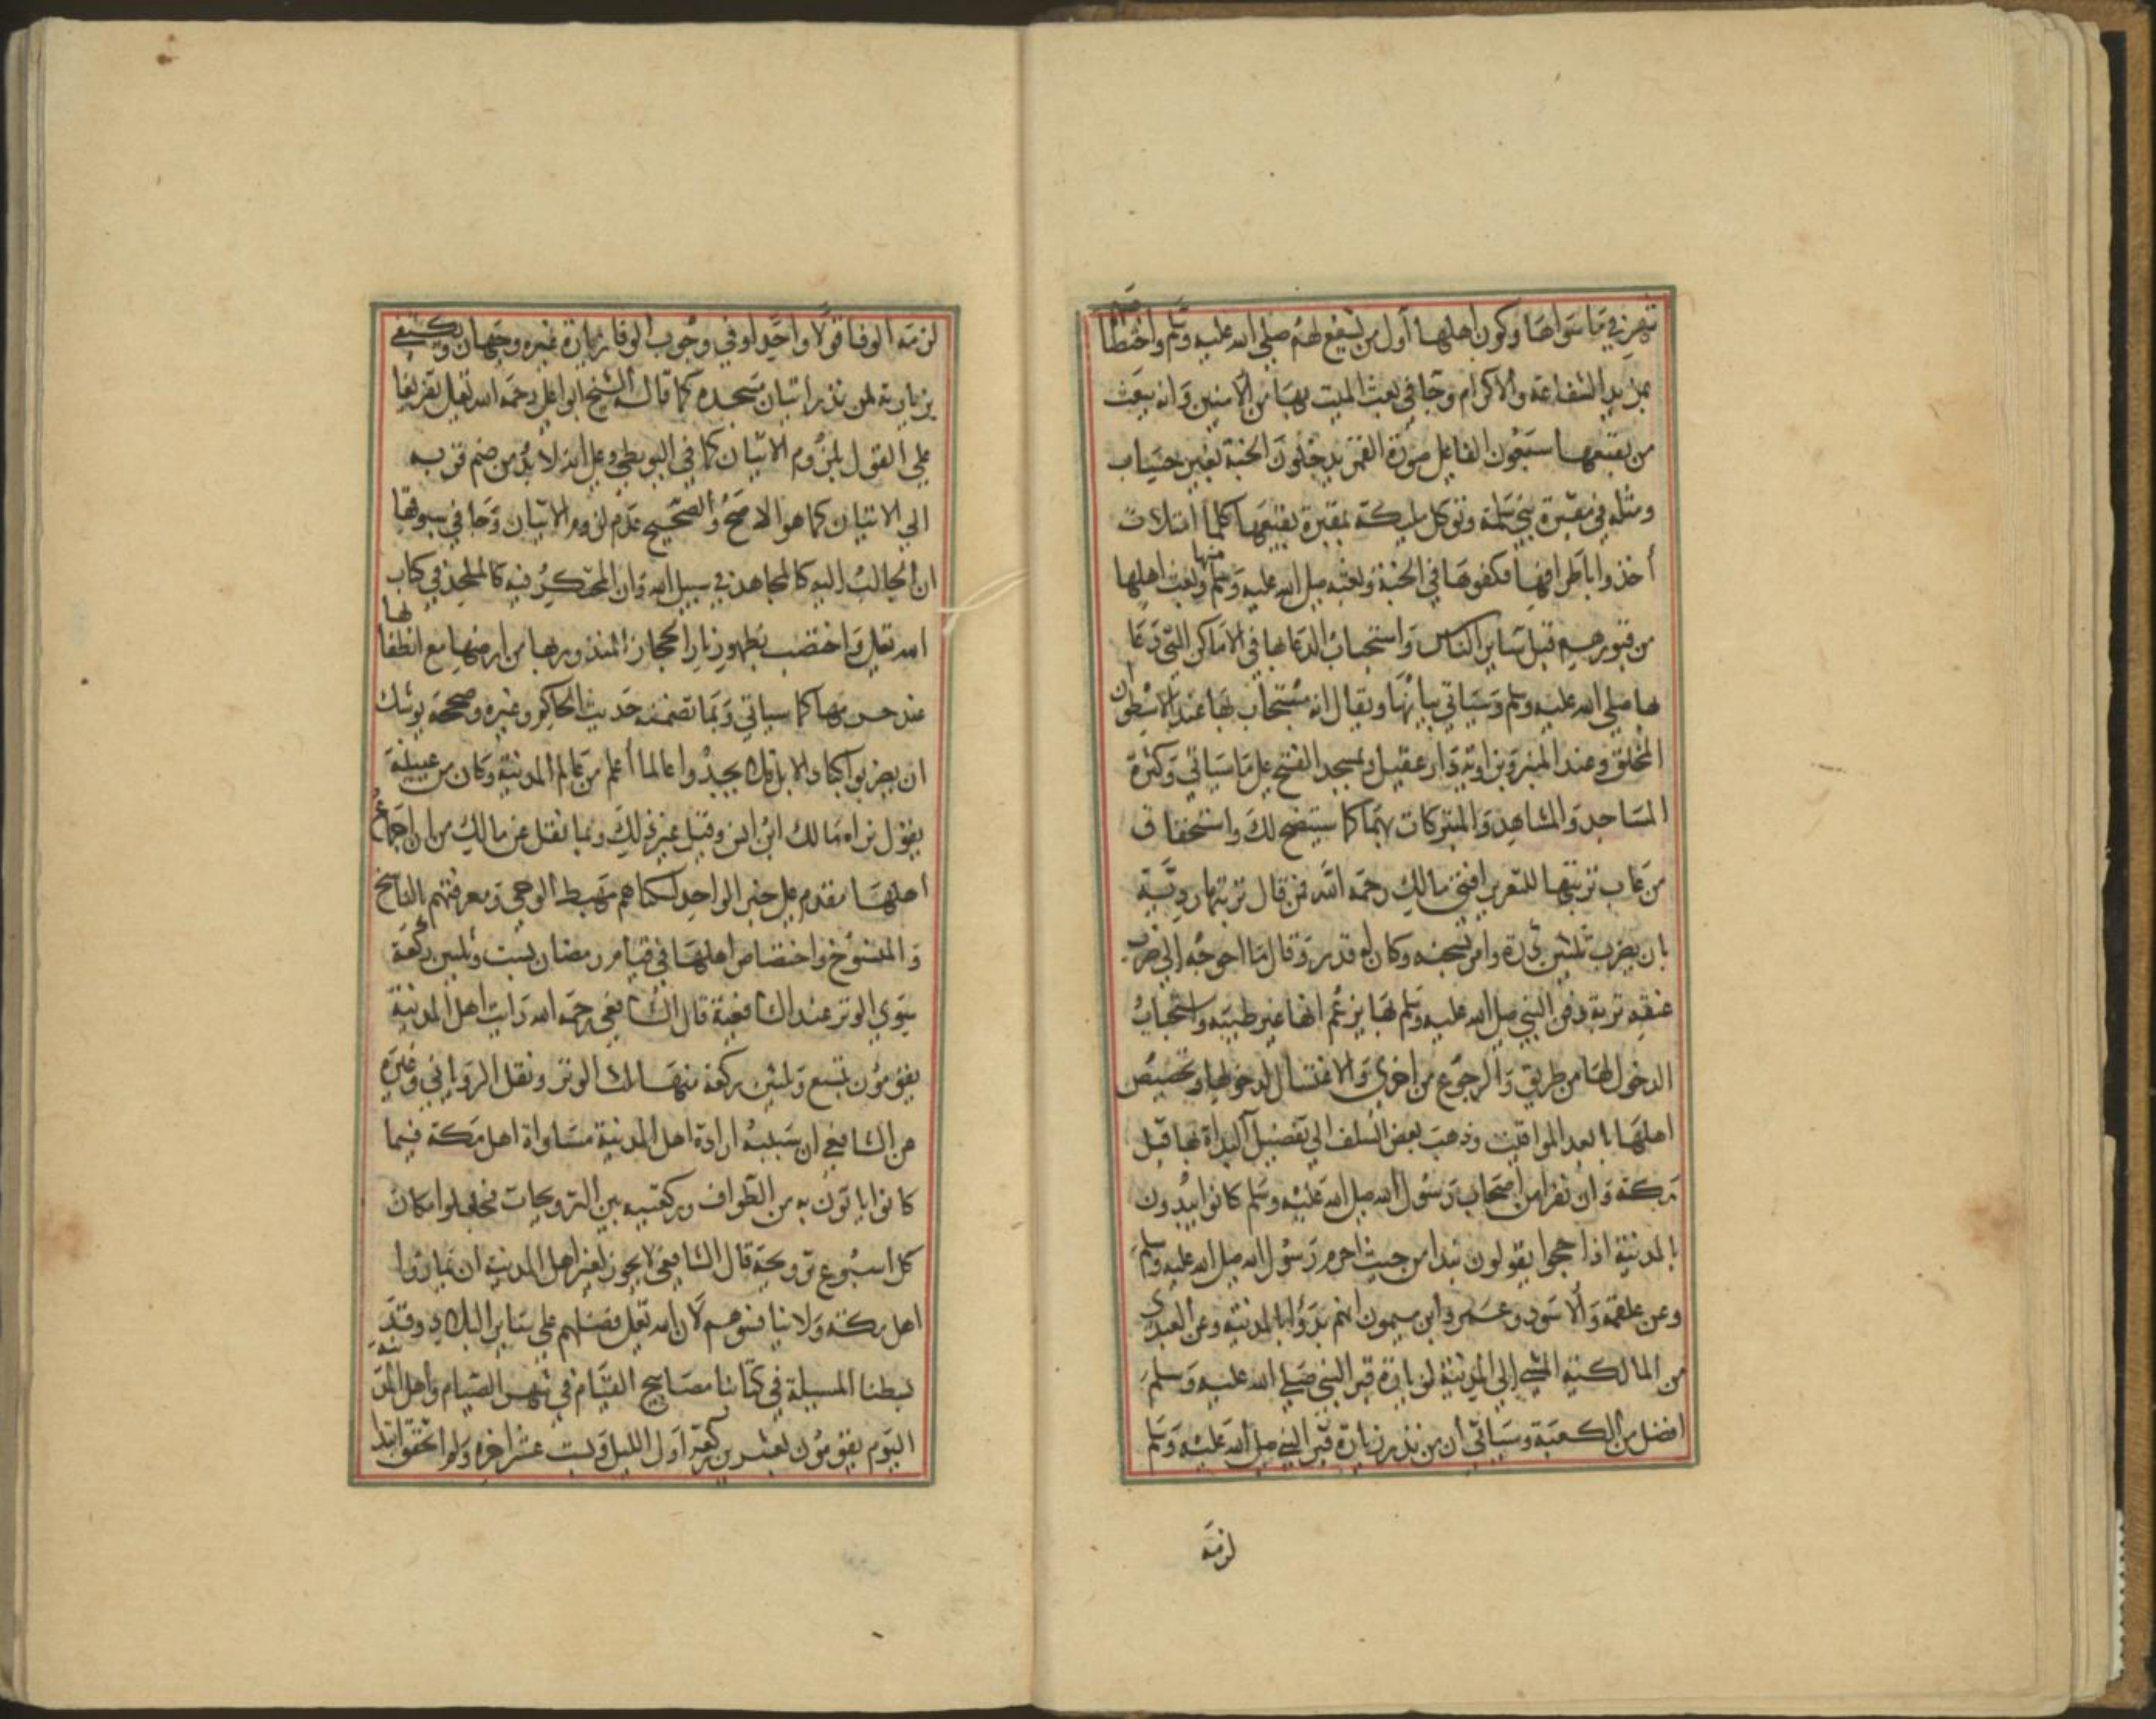 شهر في ما سواها وكون اهلها أول من يشفع لهم صلى الله عليه وسلم واختصا
بمزيد الشفاعة والاكرام وجا في بعث الميت بها من الآمنين وانه يبعث
من بقيعها سبعون الفا على صورة القمر يدخلون الجنة بغير حساب
ومثله في مقبرة بني سلمة وتوكل ملايكة بمقبرة بقيعها كلما امتلات
أخذوا باطرافها فكفوها في الجنة وبعثه صلى الله عليه وسلم منها وبعث اهلها
من قبورهم قبل سائر الناس واستحباب الدعا بها في الاماكن التي دعا
بها صلى الله عليه وسلم وسياتي بيانها ويقال انه مستجاب بها عند الاسطوان
المخلق وعند المنبر وبزاوية دار عقيل وبمسجد الفتح على ما سياتي وكثرة
المساجد والمشاهد والمتبركات بها كما سيتضح لك واستحقاق
من عاب تربتها للتعزير افتى مالك رحمه الله فمن قال تربتها رديّة
بان يضرب ثلثين درة وامر بسجنه وكان له قدر وقال ما احوجه الى ضرب
عنقه تربة دفن النبي صلى الله عليه وسلم بها يزعم انها غير طيبة واستحباب
الدخول لها من طريق والرجوع من اخرى والاغتسال لدخولها وتخصيص
اهلها بابعد المواقيت وذهب بعض السلف الى تفضيل البداة بها قبل
مكة وان نفرا من اصحاب رسول الله صلى الله عليه وسلم كانوا يبدون
بالمدينة اذا حجوا يقولون نبدا من حيث احرم رسول الله صلى الله عليه وسلم
وعن علقمة والاسود وعمرو ابن ميمون انهم بدؤا بالمدينة وعن العبدي
من المالكية المشي الى المدينة لزيارة قبر النبي صلى الله عليه وسلم
افضل من الكعبة وسياتي ان من نذر زيارة قبر النبي صلى الله عليه وسلم
لزمه
لزمه الوفا قولا واحدا وفي وجوب الوفا بزيارة غيره وجهان ويكتفى
بزيارته لمن نذر اتيان مسجده كما قاله الشيخ ابو علي رحمه الله تعالى تفريعا
على القول بلزوم الاتيان كما في البويطي وعلى انه لا بد من ضم قربه
الى الاتيان كما هو الاصح والصحيح عدم لزوم الاتيان وجا في سوقها
ان الجالب اليه كالمجاهد في سبيل الله وان المحتكر فيه كالملحد في كتاب
الله تعالى واختصت بظهور نار الحجاز المنذور بها من ارضها مع انطفا لها
عند حرمها كما سياتي وبما تضمنه حديث الحاكم وغيره وصححه يوشك
ان يضربوا اكباد الابل فلا يجدوا عالما أعلم من عالم المدينة وكان من عيينة
يقول نراه مالك ابن انس وقيل غير ذلك وبما نقل عن مالك من ان اجماع
اهلها مقدم على خبر الواحد لسكناهم مهبط الوحي ومعرفتهم بالناسخ
والمنسوخ واختصاص اهلها في قيام رمضان بست وثلثين ركعة
سوى الوتر عند الشافعية قال الشافعي رحمه الله رايت اهل المدينة
يقومون بتسع وثلثين ركعة منها ثلث الوتر ونقل الروياني وغيره
عن الشافعي ان سببه ارادة اهل المدينة مساواة اهل مكة فيما
كانوا ياتون به من الطواف وركعتيه بين الترويحات فجعلوا مكان
كل اسبوع ترويحة قال الشافعي لا يجوز لغير اهل المدينة ان يماروا
اهل مكة ولا ينافسوهم لان الله تعالى فضلهم على سائر البلاد وقد
بسطنا المسيلة في كتابنا مصابيح القيام في شهر الصيام واهل المدينة
اليوم يقومون بعشرين ركعة اول الليل وبست عشر اخره ولم اتحقق ابتدا